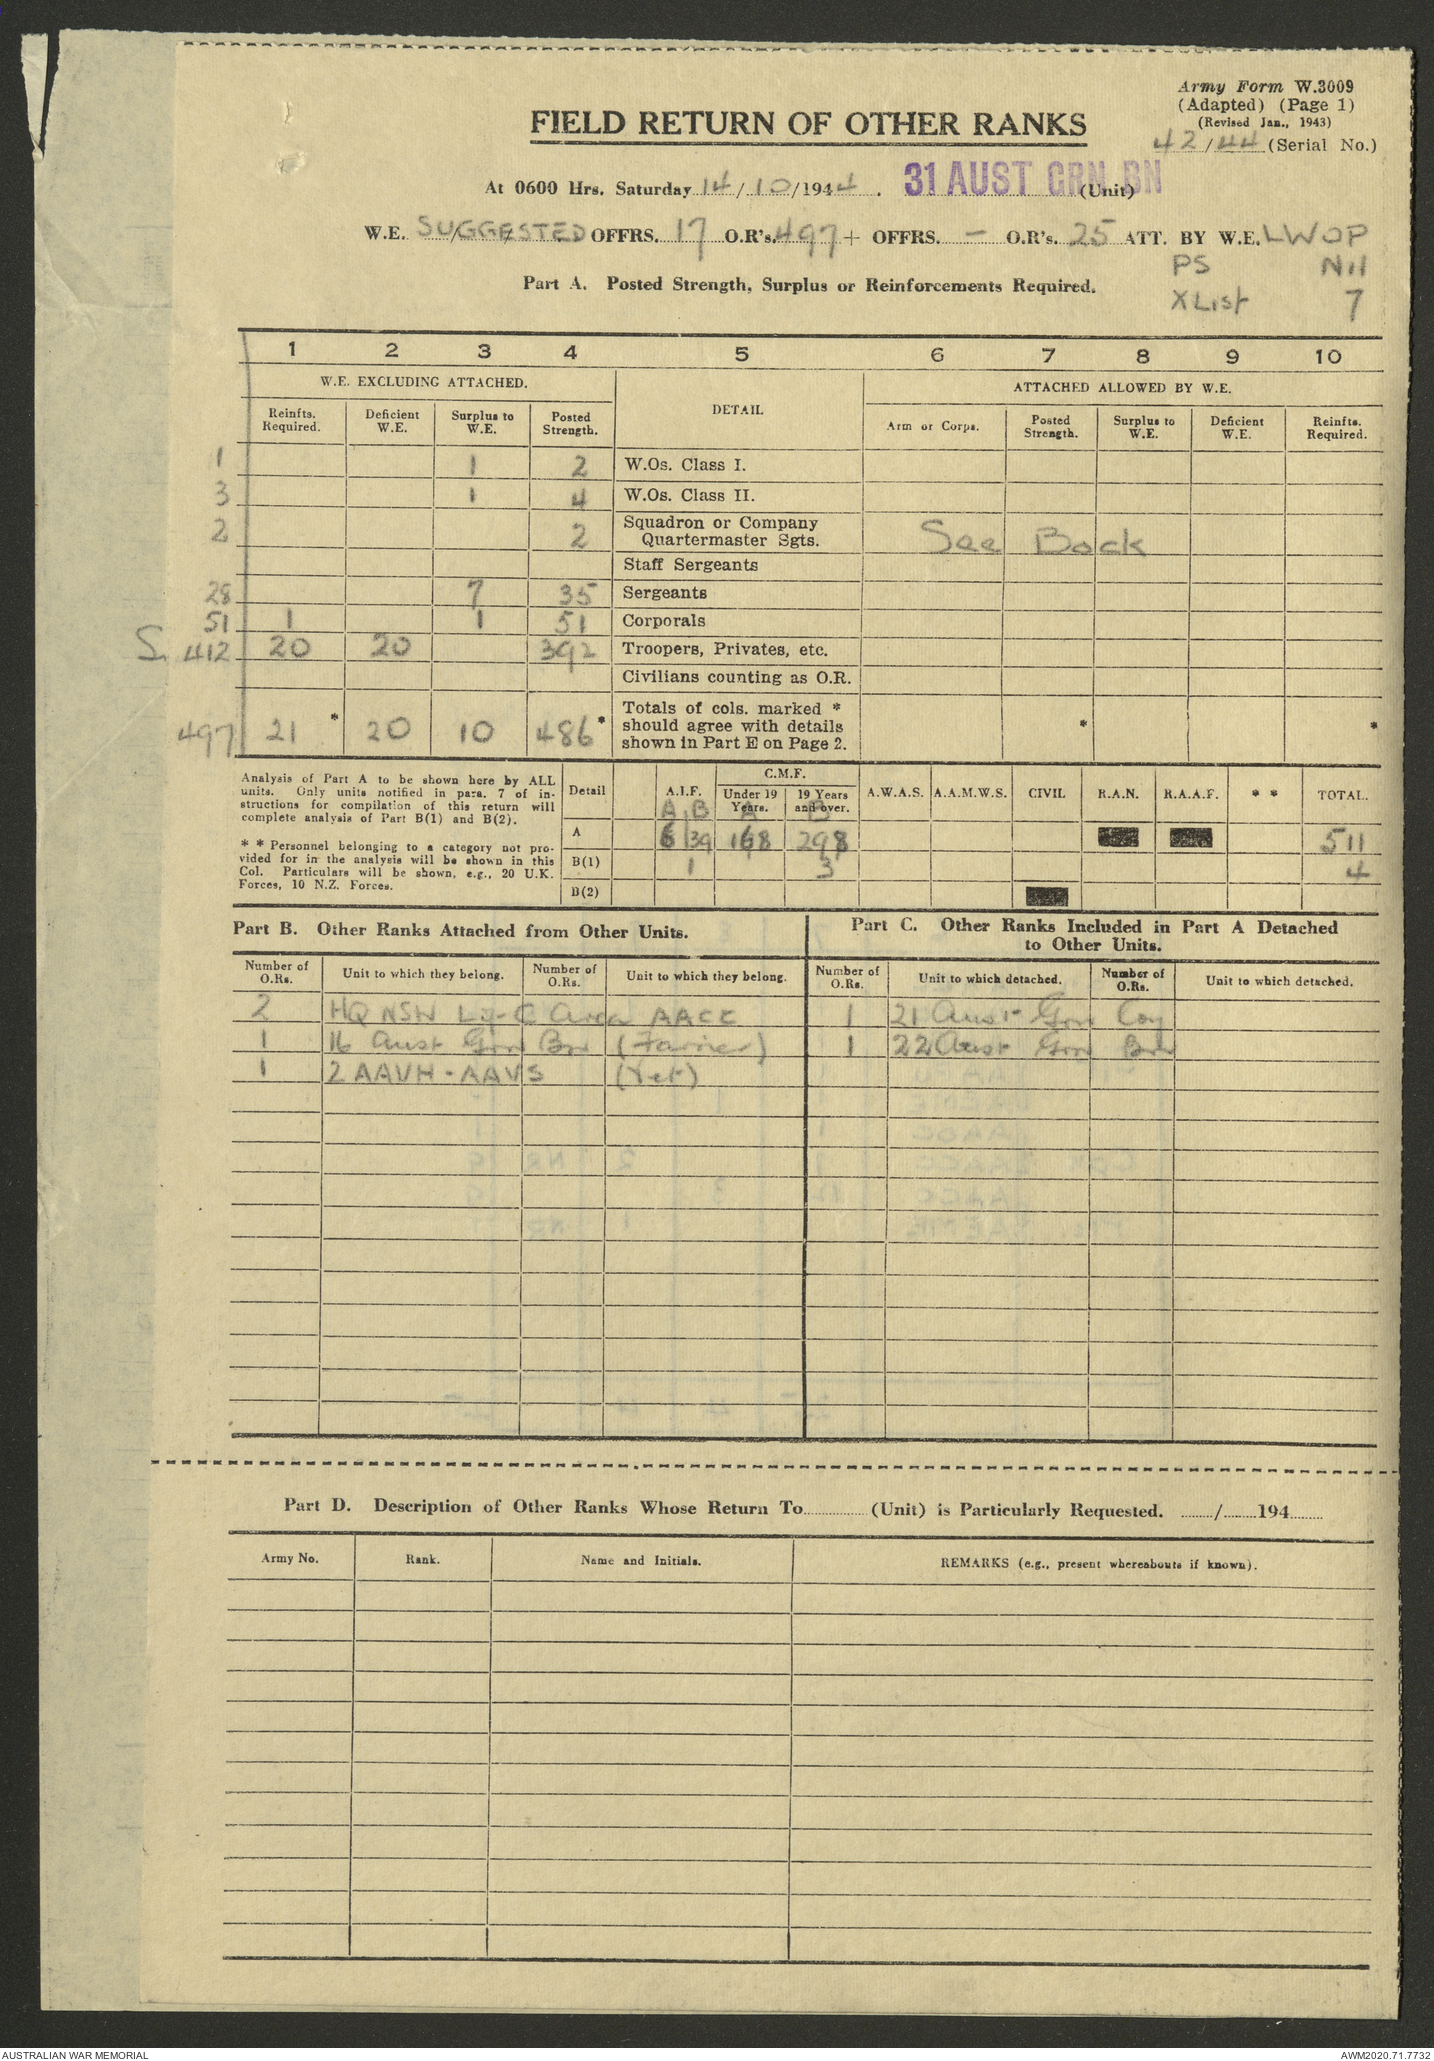 Army Form W.3009
(Adapted) (Page 1)
(Revised Jan., 1943)
42/44 (Serial No.)
FIELD RETURN OF OTHER RANKS
At 0600 Hrs. Saturday 14/10/1944. 31 AUST GRN BN (Unit)
W.E. SUGGESTED OFFRS. 17 O.R's. 497 + OFFRS. - O.R's. 25 ATT. BY W.E. LWOP
PS Nil
X List 7
Part A. Posted Strength, Surplus or Reinforcements Required.
1 2 3 4 5 6 7 8 9 10
W.E. EXCLUDING ATTACHED. DETAIL ATTACHED ALLOWED BY W.E.
Reinfts. Required. Deficient W.E. Surplus to W.E. Posted Strength. Arm or Corps. Posted Strength. Surplus to W.E. Deficient W.E. Reinfts. Required.
1 1 2 W.Os. Class I.
3 1 4 W.Os. Class II.
2 2 Squadron or Company Quartermaster Sgts. See Back
Staff Sergeants
28 7 35 Sergeants
51 1 1 51 Corporals
S. 412 20 20 392 Troopers, Privates, etc.
Civilians counting as O.R.
497 21 * 20 10 486 * Totals of cols. marked * should agree with details shown in Part E on Page 2. * *
Analysis of Part A to be shown here by ALL
units. Only units notified in para. 7 of in-
structions for compilation of this return will
complete analysis of Part B(1) and B(2).
* * Personnel belonging to a category not pro-
vided for in the analysis will be shown in this
Col. Particulars will be shown, e.g., 20 U.K.
Forces, 10 N.Z. Forces.
C.M.F.
Detail A.I.F. Under 19 Years. 19 Years and over. A.W.A.S. A.A.M.W.S. CIVIL R.A.N. R.A.A.F. * * TOTAL.
A B A B
A 6 39 168 298 511
B(1) 1 3 4
B(2)
Part B. Other Ranks Attached from Other Units.
Number of O.Rs. Unit to which they belong. Number of O.Rs. Unit to which they belong.
2 HQ NSW L of C Area AACC
1 16 Aust Grn Bn (Farrier)
1 2 AAVH - AAVS (Vet)
Part C. Other Ranks Included in Part A Detached
to Other Units.
Number of O.Rs. Unit to which detached. Number of O.Rs. Unit to which detached.
1 21 Aust Grn Coy
1 22 Aust Grn Bn
Part D. Description of Other Ranks Whose Return To (Unit) is Particularly Requested. / 194
Army No. Rank. Name and Initials. REMARKS (e.g., present whereabouts if known).
AUSTRALIAN WAR MEMORIAL AWM2020.71.7732